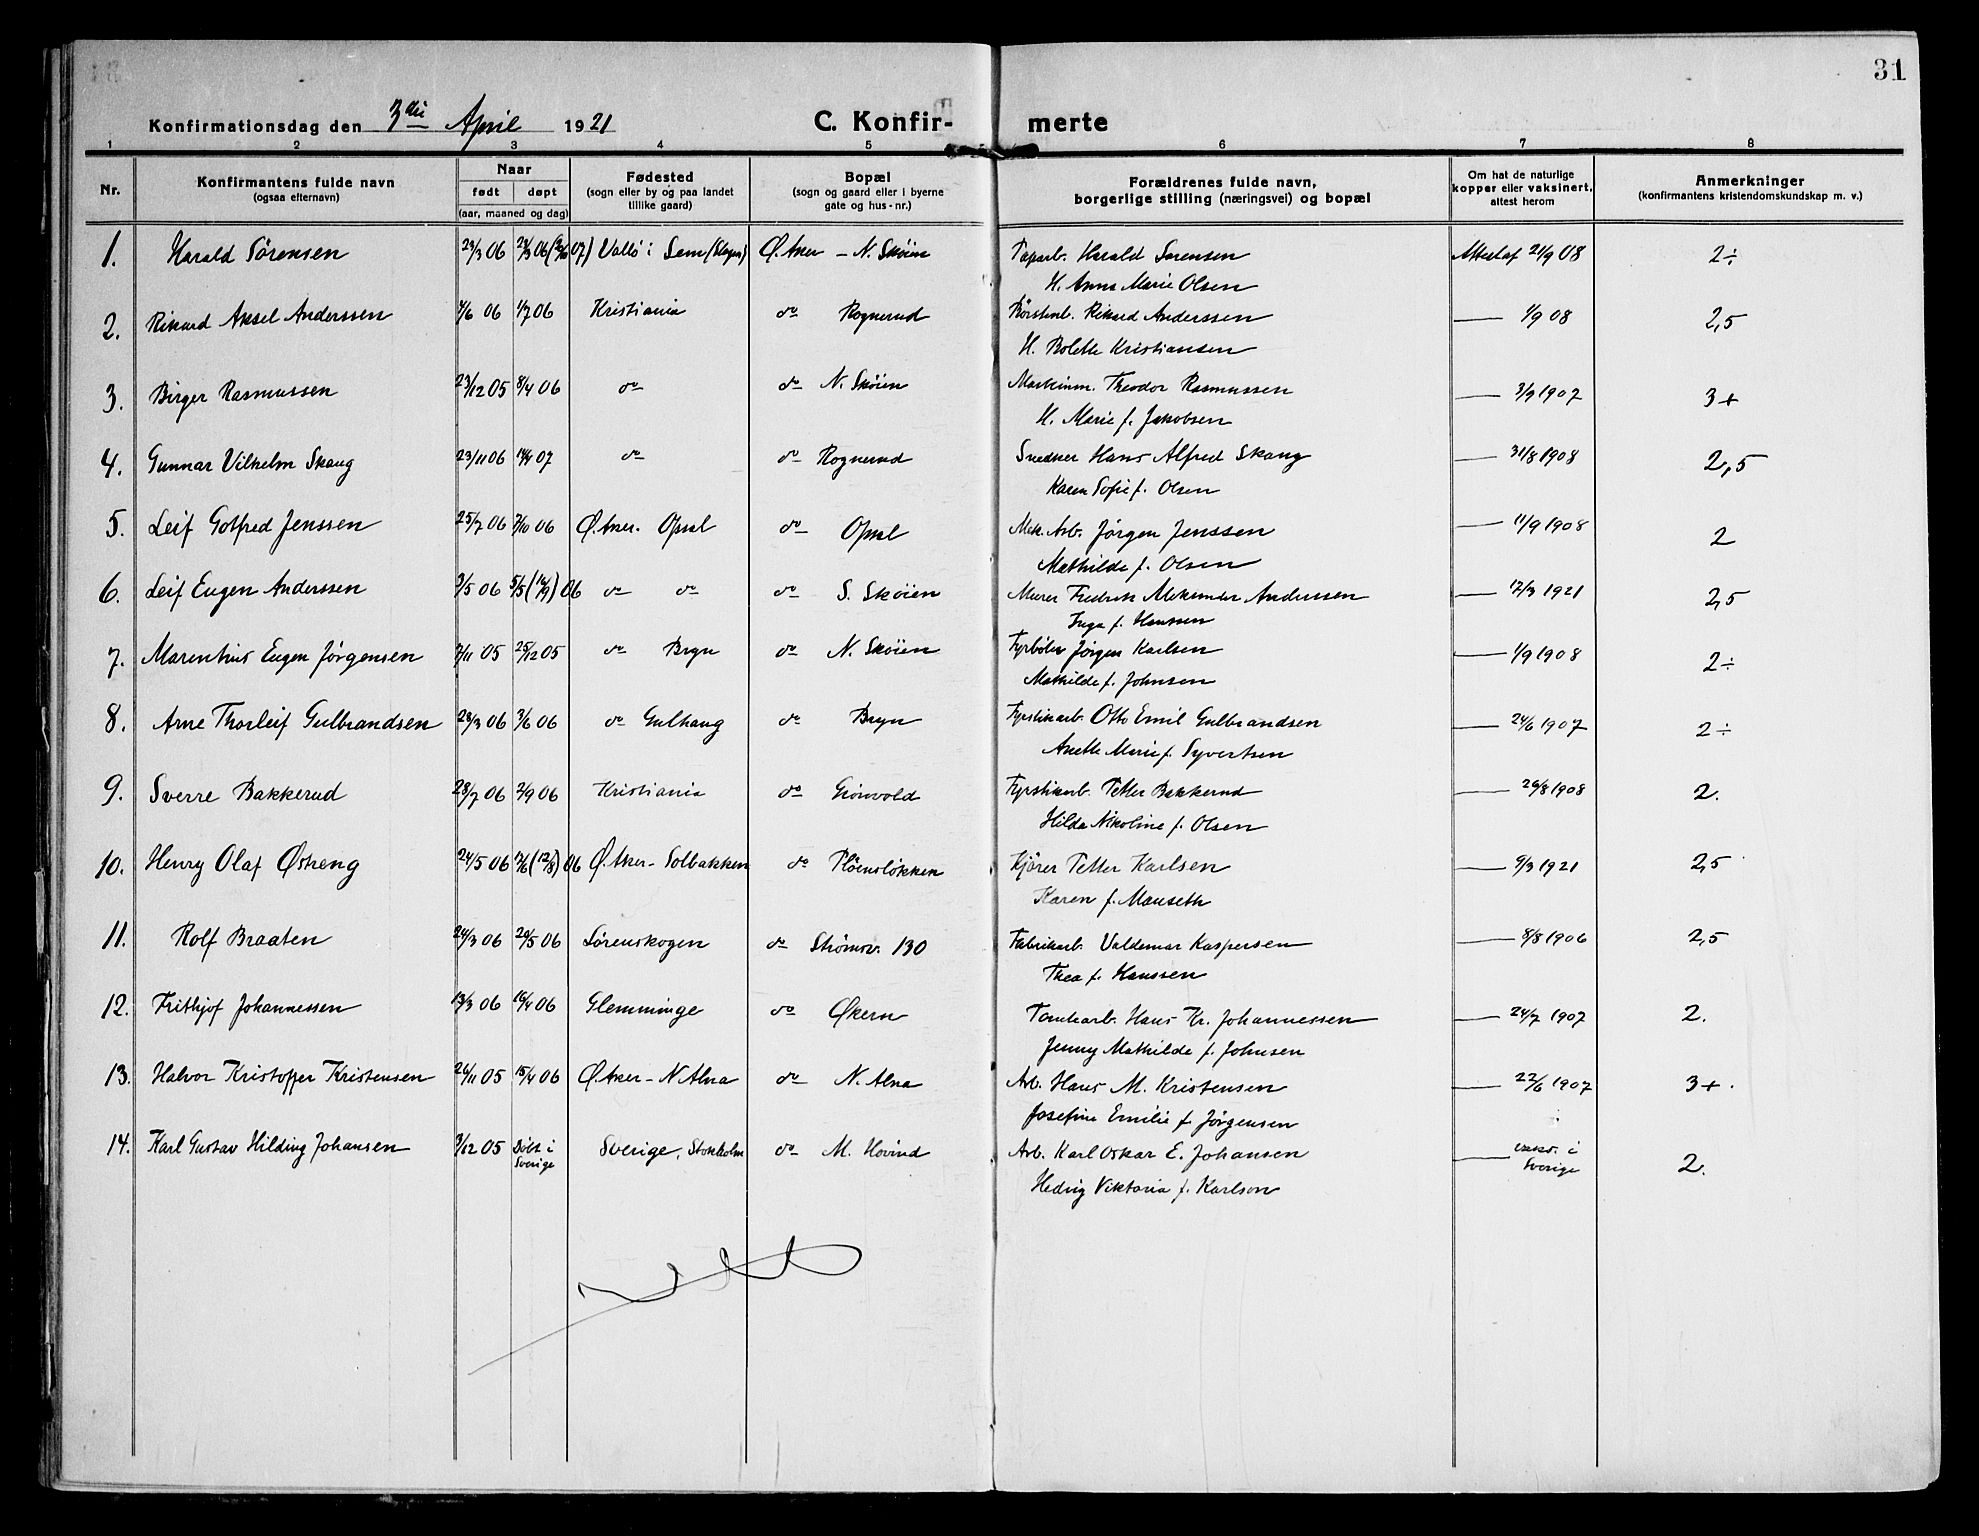 31
Konfirmationsdag den 3die April 1921 C. Konfirmerte
1 2 3 4 5 6 7 8
Nr. Konfirmantens fulde navn (ogsaa efternavn) Naar født døpt (aar, maaned og dag) Fødested (sogn eller by og paa landet tillike gaard) Bopæl (sogn og gaard eller i byerne gate og hus-nr.) Forældrenes fulde navn, borgerlige stilling (næringsvei) og bopæl Om hat de naturlige kopper eller vaksinert, attest herom Anmerkninger (konfirmantens kristendomskundskap m. v.)
1. Harald Sørensen 23/3 06 Vallö i Sem (Slagen) Ø. Aker - N. Skøien Paparb. Harald Sørensen Attest af 21/9 08 2÷
H. Anna Marie Olsen
2. Rikard Aksel Anderssen 4/6 06 1/7 06 Kristiania do Rognerud Børstenb. Rikard Anderssen — 1/9 08 2,5
H. Bolette Kristiansen
3. Birger Rasmussen 23/12 05 8/4 06 do do N. Skøien Maskinm. Theodor Rasmussen — 3/9 1907 3+
H. Marie f. Jakobsen
4. Gunnar Vilhelm Skaug 23/11 06 14/4 07 do do Rognerud Snedker Hans Alfred Skaug — 31/8 1908 2,5
Karen Sofie f. Olsen
5. Leif Gotfred Jenssen 25/7 06 7/10 06 Ø. Aker. Opsal do Opsal Mek. Arb. Jørgen Jenssen — 11/9 1908 2
Mathilde f. Olsen
6. Leif Eugen Anderssen 3/5 06 5/5 (16/9) 06 do do do S. Skøien Murer Fredrik Aleksander Anderssen — 17/3 1921 2,5
Inga f. Hanssen
7. Marenthius Eugen Jørgensen 7/11 05 25/12 05 do Bryn do N. Skøien Fyrbøter Jørgen Karlsen — 1/9 1908 2÷
Mathilde f. Johnsen
8. Arne Thorleif Gulbrandsen 23/3 06 3/6 06 do Gulhaug do Bryn Fyrstikarb. Otto Emil Gulbrandsen — 24/6 1907 2÷
Anette Marie f. Syvertsen
9. Sverre Bakkerud 28/7 06 2/9 06 Kristiania do Grønvold Fyrstikarb. Petter Bakkerud — 26/8 1908 2.
Hilda Nikoline f. Olsen
10. Henry Olaf Østeng 24/5 06 17/6 (12/8) 06 Ø. Aker - Solbakken do Pløensløkken Kjører Petter Karlsen — 9/3 1921 2,5
Karen f. Mauseth
11. Rolf Braaten 24/3 06 20/5 06 Lørenskogen do Strømsv. 130 Fabrikarb. Valdemar Kaspersen — 8/8 1906 2,5
Thea f. Hanssen
12. Frithjof Johannessen 13/3 06 16/4 06 Glemminge do Økern Tomtearb. Hans Kr. Johannessen — 24/7 1907 2.
Jenny Mathilde f. Johnsen
13. Halvor Kristoffer Kristensen 26/11 05 15/4 06 Ø. Aker - N Alna do N. Alna Arb. Hans M. Kristensen — 22/6 1907 3+
Josefine Emilie f. Jørgensen
14. Karl Gustav Hilding Johansen 3/12 05 Døbt i Sverige Sverige, Stokholm do M. Hovind Arb. Karl Oskar E. Johansen — vaks. i Sverige 2.
Hedvig Viktoria f. Karlson